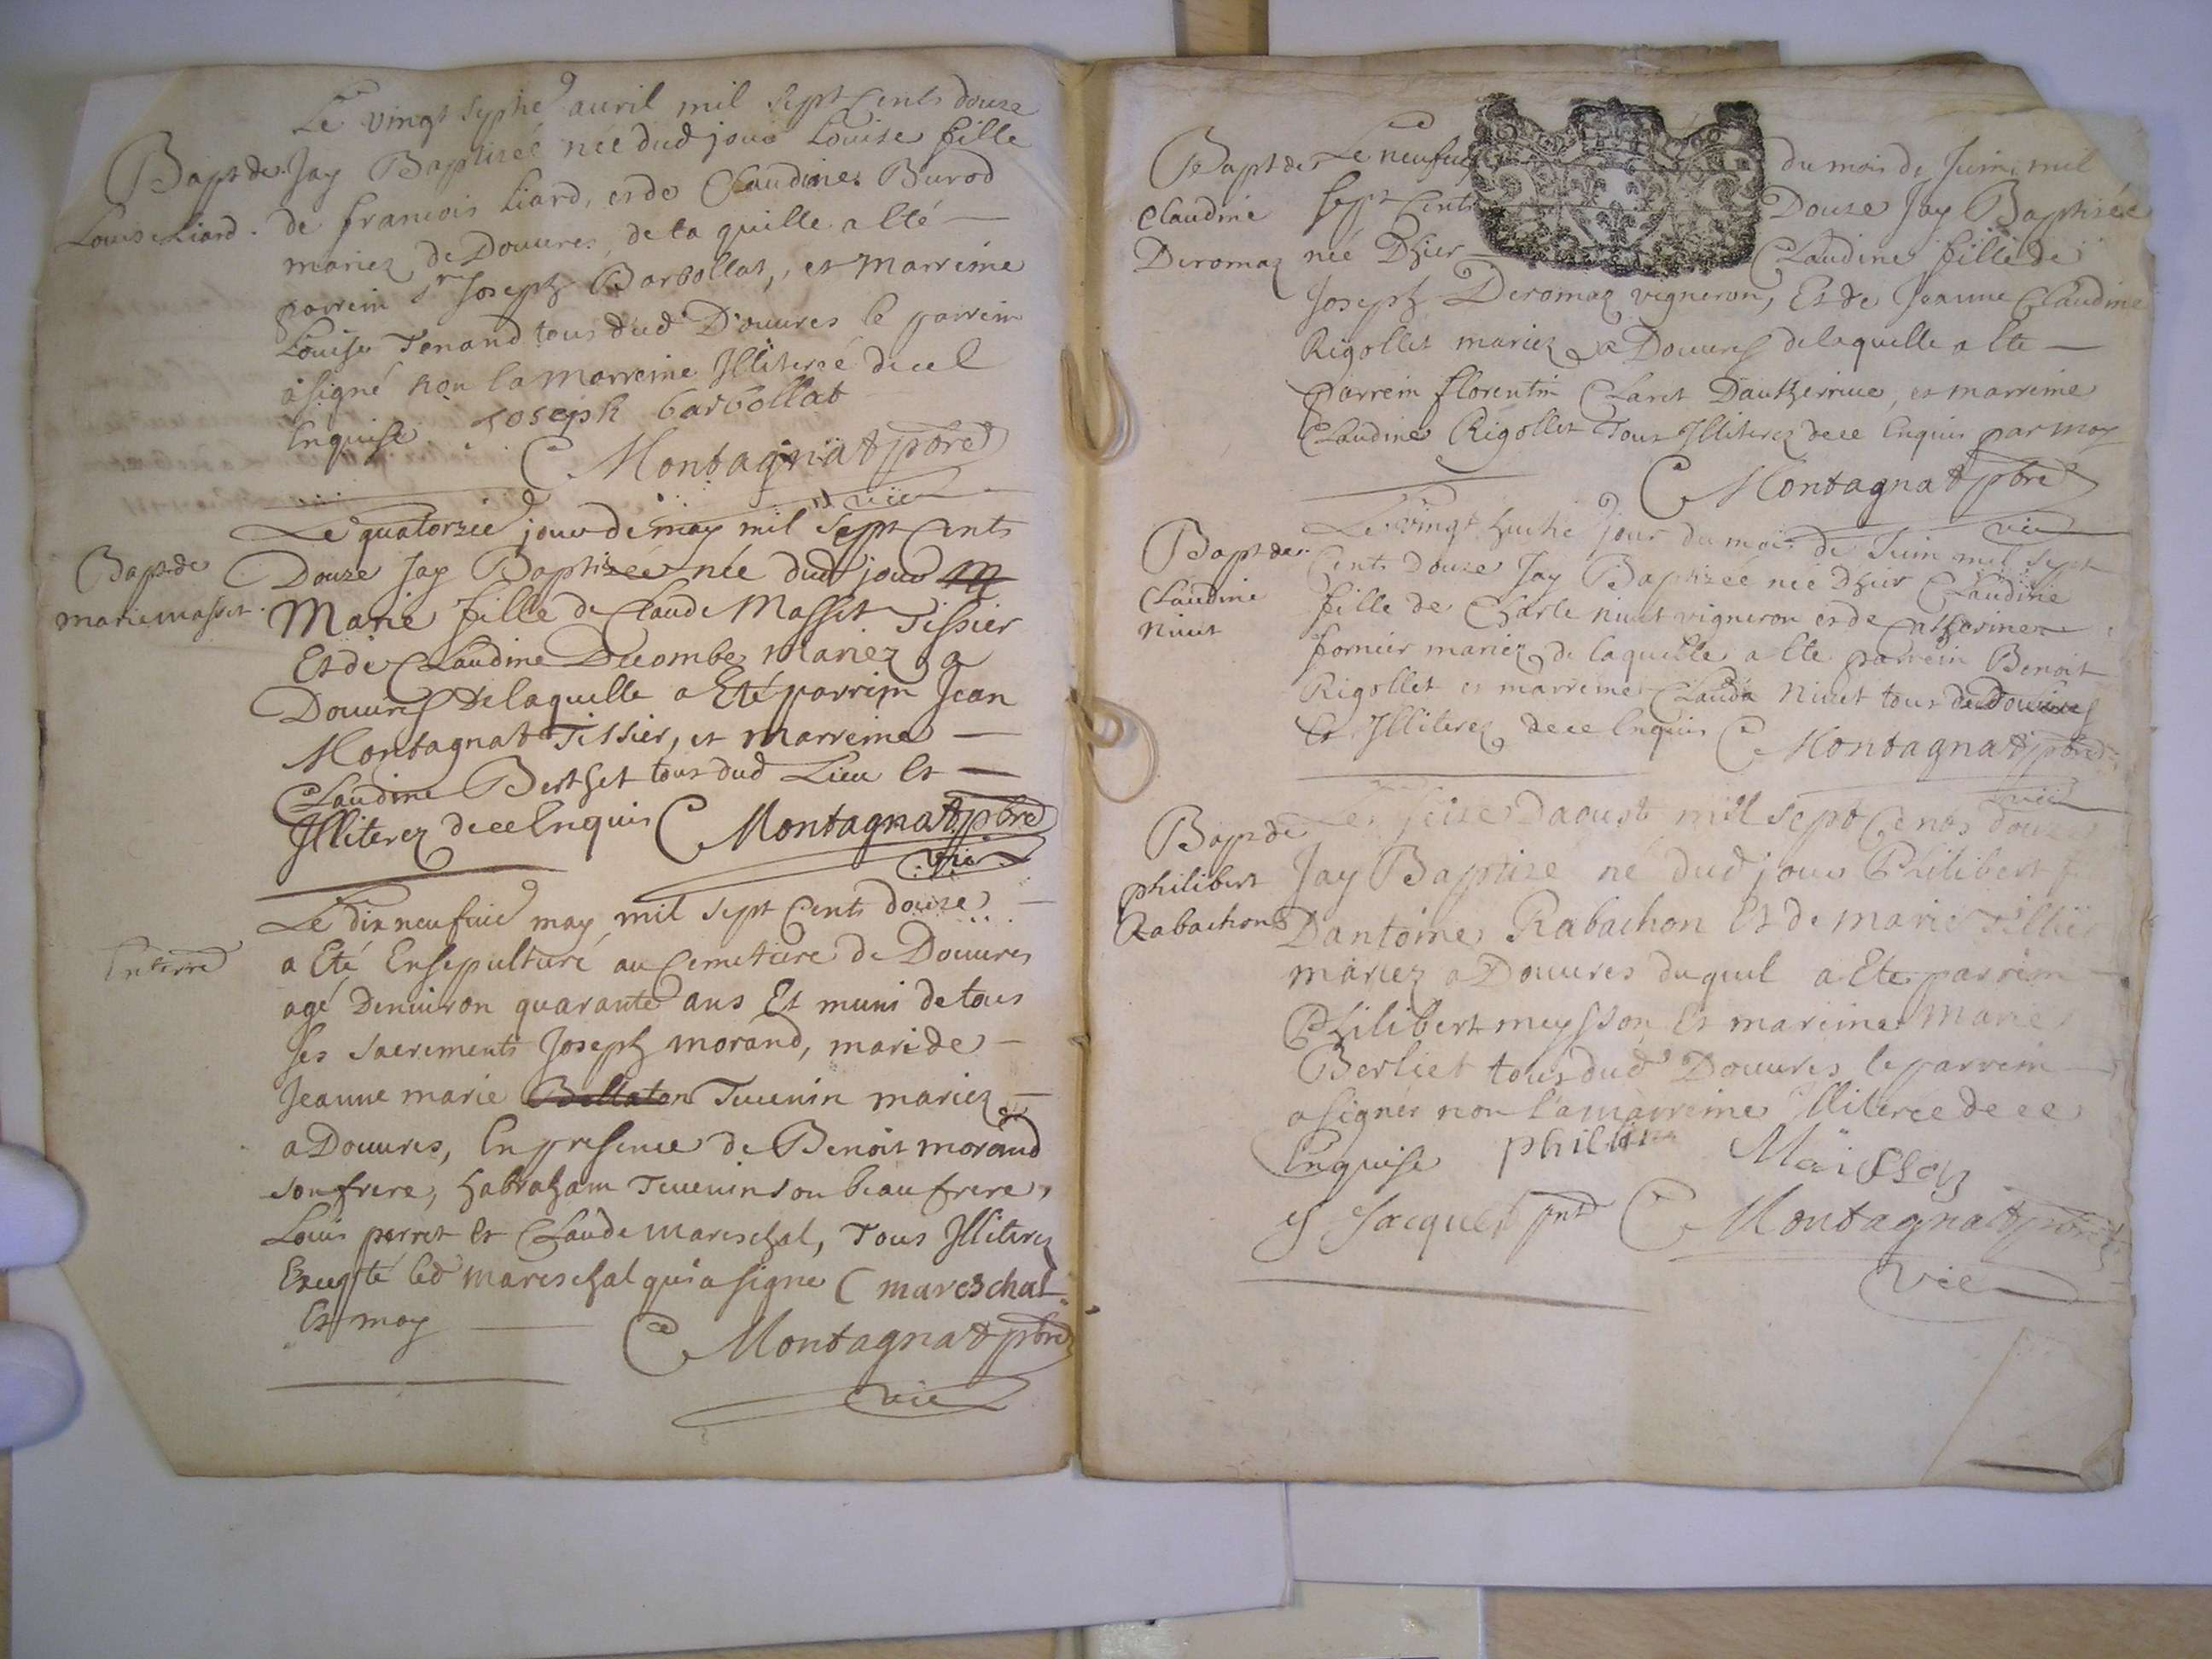 Le vingt septie avril mil sept Cents douze
Bapt de Jay Baptizéé néé dud jour Louise fille
Louise Liard. de francois Liard, et de Claudine Burod
mariez de Douures, de la quille a Eté
parrein Sr Joseph Barbollat, et Marreine
Louise Tenand tous dud Douures le parrein
a signé non la Marreine Illiteréé de cel
Enquise. Joseph barbollat
C Montagnat pbre
vic
Le quatorzie jour de may mil Sept Cents
Bapt de Douze Jay Baptizéé néé dud jour
marie masset. Marie fille de Claude Masset Tissier
Et de Claudine Decombe Mariez a
Douures de laquelle a Eté parrein Jean
Montagnat Tissier, et Marreine
Claudine Berthet tous dud Lieu Et
Illiterez de ce Enquis C Montagnat pbre
vic
Le dixneufuie may mil sept Cents douze
Enterré a Eté Ensepulturé au Cemetiere de Douures
agé Denuiron quarante ans Et muni de tous
ses sacrements Joseph morand, mari de
Jeanne marie Bollaton Tuuenin mariez
a Douures, En presence de Benoit morand
son frere, habraham Tuuenin son beau frere,
Louis perret Et Claude mareschal, Tous Illiterez
Excepté led mareschal qui a signe C mareschal
Et moy C Montagnat pbre
vic
Bapt de Le neufuie du mois de Juin mil
Claudine sept Cents Douze Jay Baptizéé
Deromaz néé Dhier Claudine fille de
Joseph Deromaz vigneron, Et de Jeanne Claudine
Rigollet mariez a Douures de laquelle a Ete
parrein florentin Claret Dautherriue, et marreine
Claudine Rigollet Tous Illiterez de ce Enquis par moy
C Montagnat pbre
vic
Le vingt huitie jour du mois de Juin mil sept
Bapt de Cents Douze Jay Baptizéé néé Dhier Claudine
Claudine fille de Charle niuet vigneron et de Catherine
niuet fornier mariez, de laquelle a Ete parrein Benoit
Rigollet et marreine Clauda Niuet tous de Douures
Et Illiterez de ce Enquis C Montagnat pbre
vic
Le seize Daoust mil sept Cents douze
Bapt de Jay Baptizé né dud jour Philibert
philibert Dantoine Rabachon Et de marie
Rabachon mariez a Douures duquel a Ete parrein
Philibert meysson Et mareine Marie
Berliet tous dud Douures le parrein
a signér non la marreine Illiteréé de ce
Enquise philibert Maisson
Jacquet C Montagnat pbre
vic